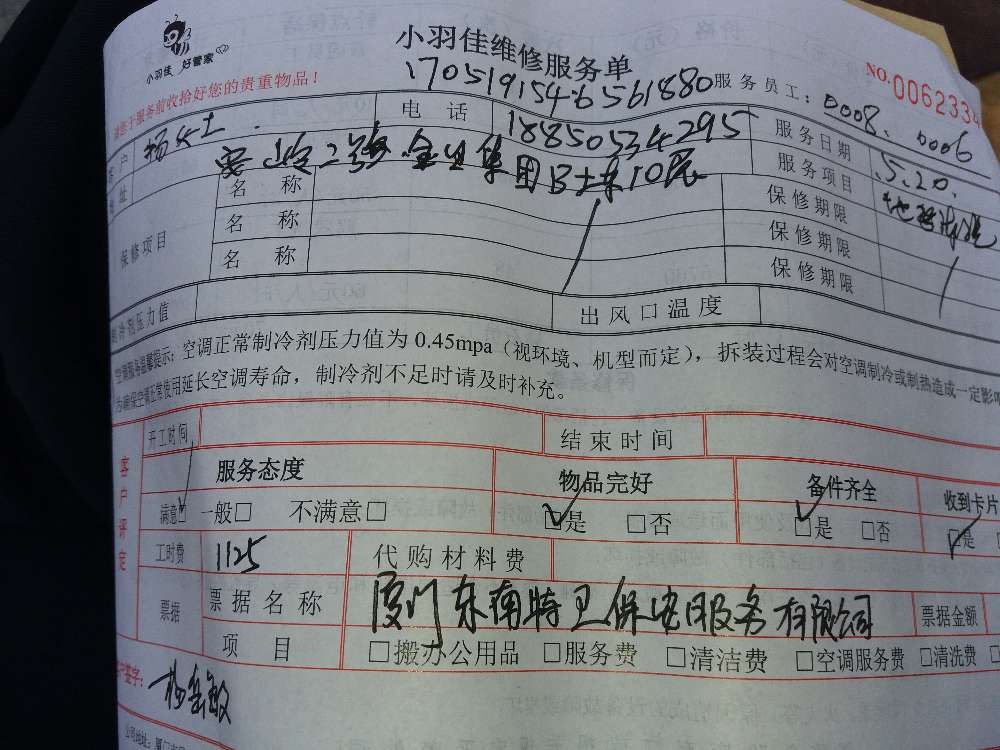 小羽佳 好管家
小羽佳维修服务单
NO.006233
服务前收拾好您的贵重物品！
17051915466561880 服务员工：0008、0006
户 杨女士 电话 18850534295 服务日期 5.20.
址 二号 集团B 10层 服务项目
保修项目 名称 保修期限
名称 保修期限
名称 保修期限
制冷剂压力值 出风口温度
空调服务温馨提示：空调正常制冷剂压力值为 0.45mpa（视环境、机型而定），拆装过程会对空调制冷或制热造成一定影
确保空调正常使用延长空调寿命，制冷剂不足时请及时补充。
客户评定 开工时间 结束时间
服务态度 物品完好 备件齐全 收到卡片
满意□ 一般□ 不满意□ □是 □否 □是 □否 □是
工时费 1125 代购材料费
票据 票据名称 厦门东南特卫保安服务有限公司 票据金额
项目 □搬办公用品 □服务费 □清洁费 □空调服务费 □清洗费
签字：
公司地址：厦门市